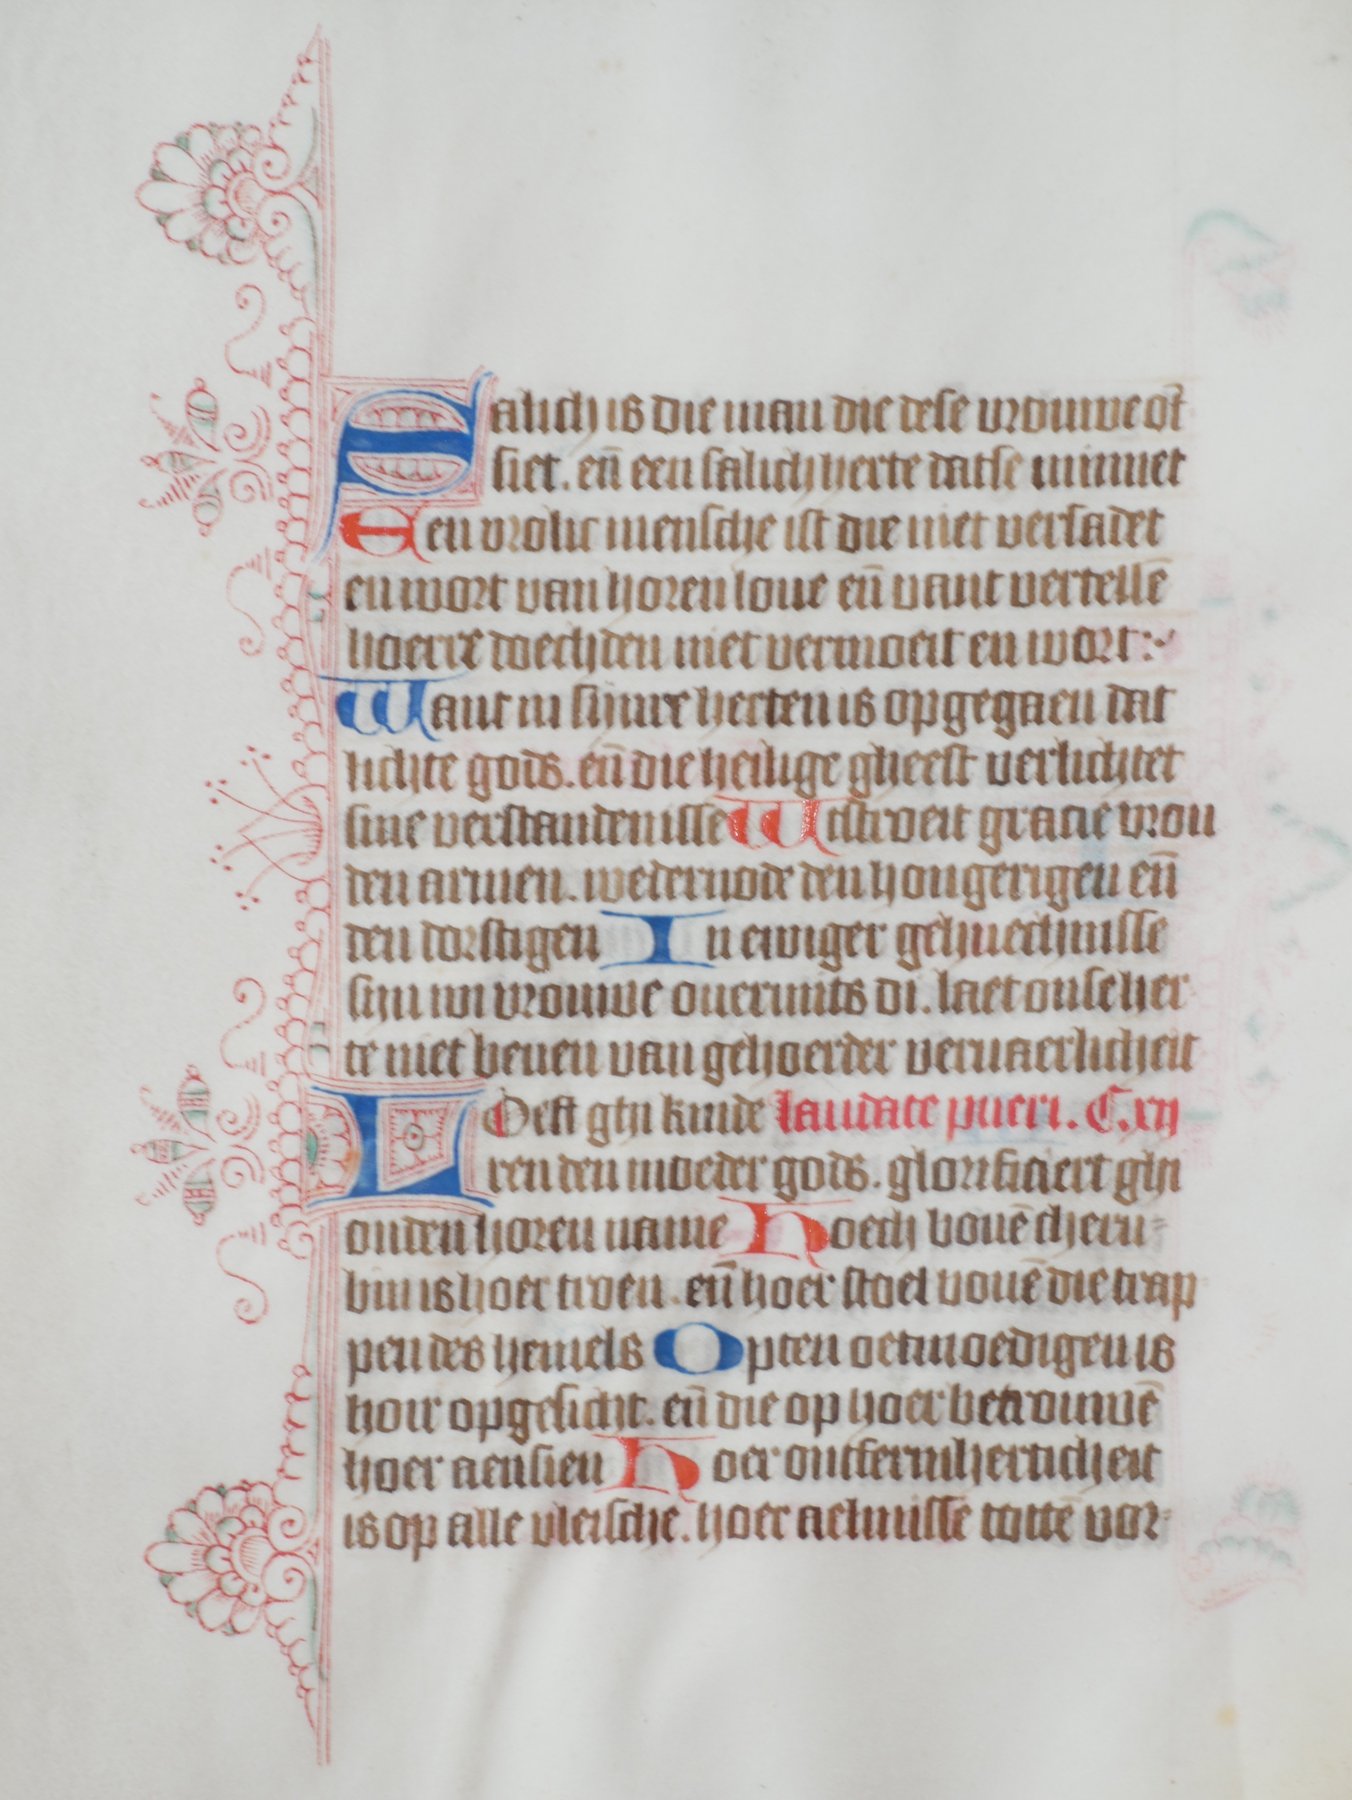 Salich is die man die dese vrouwe ōt
siet. eñ een salich herte datse minnet
Een vrolic mensche ist die niet versadet
en wort van horen loue eñ vant vertellē
hoerre doechden niet vermoeit en wort:
Want in sijnre herten is opgegaen dat
lichte gods. eñ die heilige gheest verlichtet
sine verstandenisse Wtstroeit gracie vrou
den armen. wedervode den hongerigen eñ
den dorstigen In ewiger gehuechnisse
sijn wi vrouwe ouermits di. laet onse her
te niet beuen van gehoerder veruaerlicheit
Loeft ghi kinde laudate pueri. C.xij
ren den moeder gods. glorificiert ghi
ouden horen name Hoech bouē cheru=
bin is hoer troen. eñ hoer stoel bouē die trap
pen des hemels Opten oetmoedigen is
hoir opgesicht. eñ die op hoer betrouwē
hoer aensien Hoer ontfermherticheit
is op alle vleische. hoer aelmisse totte vor=